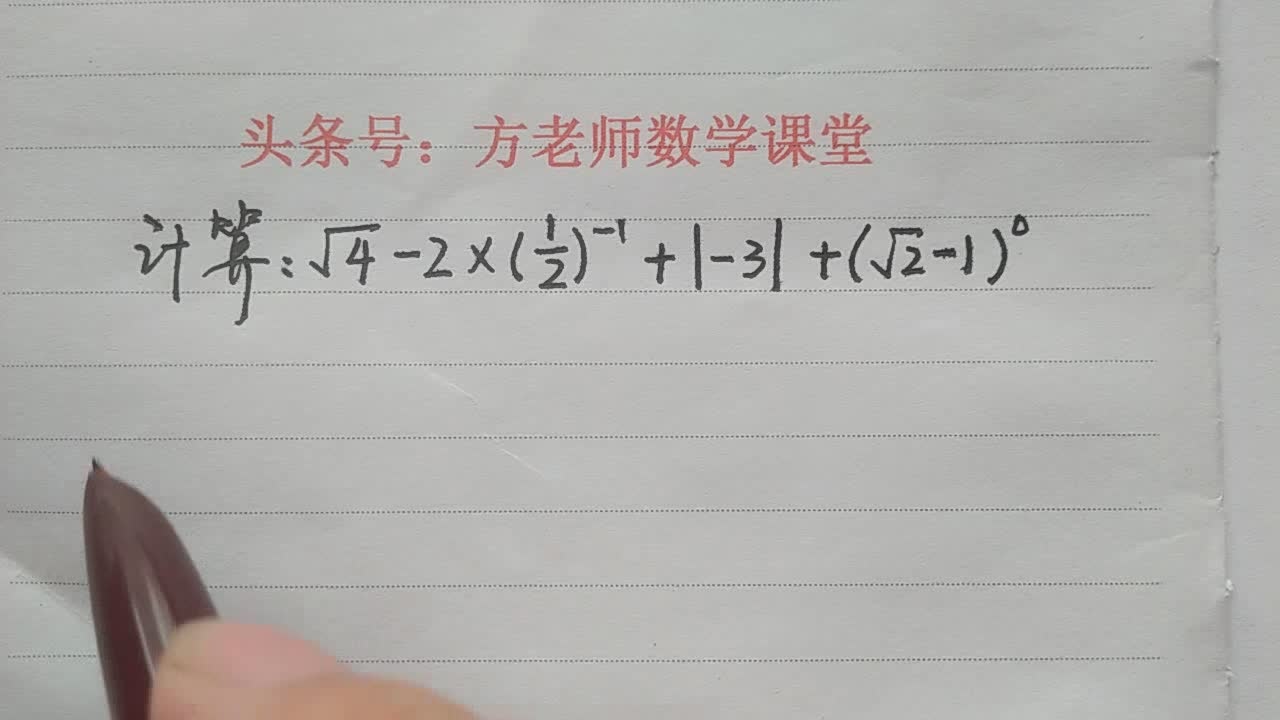 头条号：方老师数学课堂
计算：√4-2×(1/2)⁻¹+|-3|+(√2-1)⁰